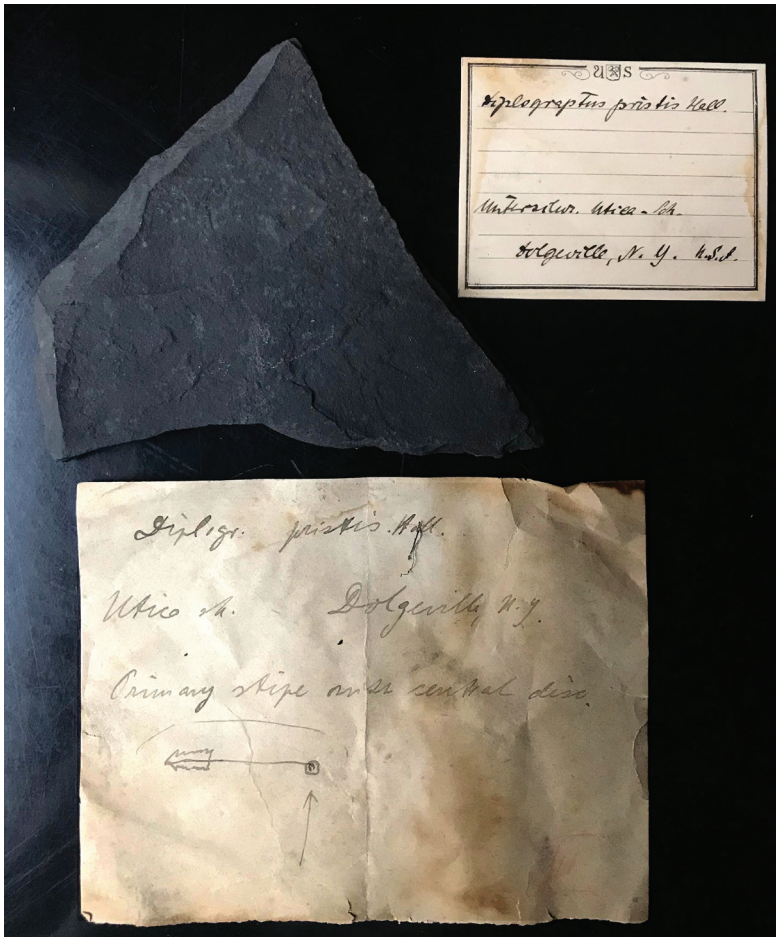 U S
Diplograptus pristis Hall.
Untersilur. Utica-Sch.
Dolgeville, N. Y. U.S.A.
Diplogr. pristis Hall.
Utica sh. Dolgeville, N.Y.
Primary stipe with central disc.